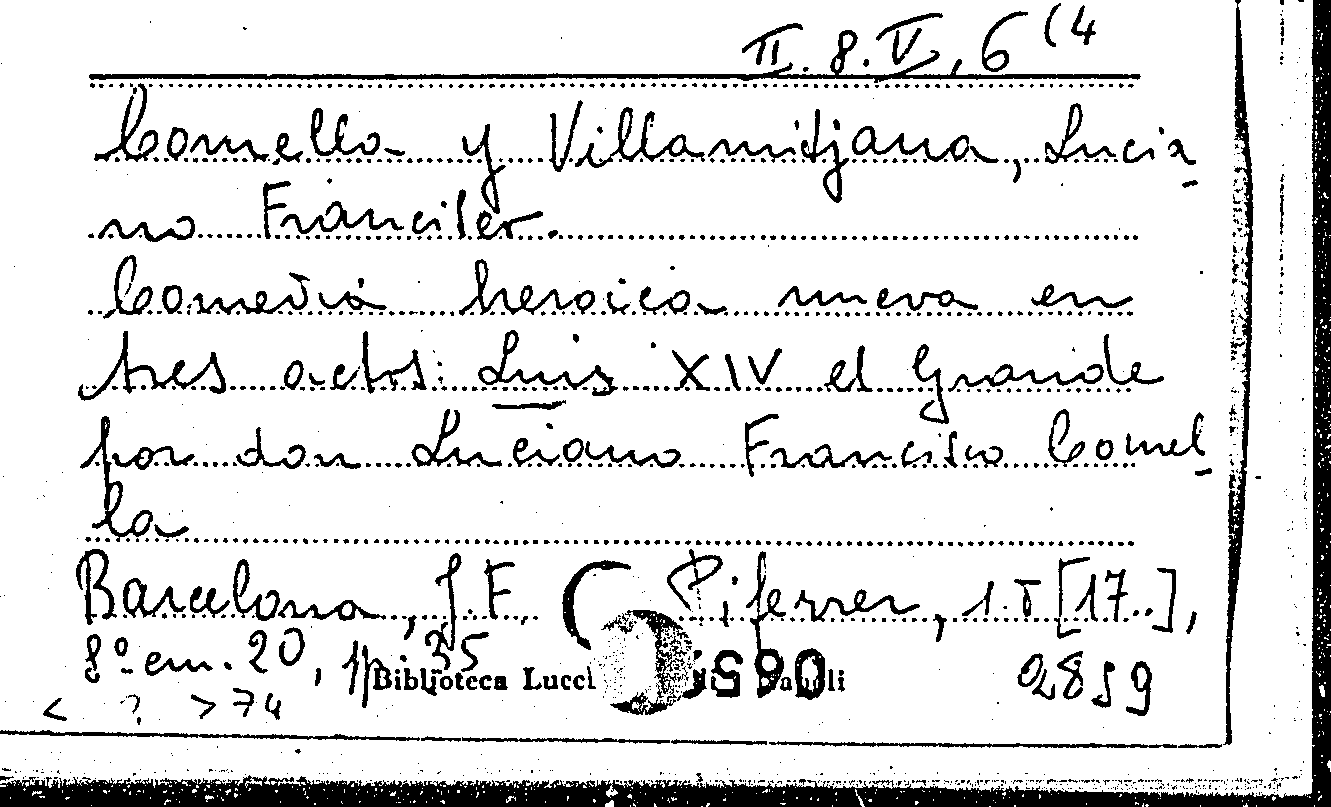 II.8.V,6(4
Comella y Villamitjana, Lucia-
no Francisco.
Comedia heroica nueva en
tres actos: Luis XIV el Grande
por don Luciano Francisco Comel-
la
Barcelona, J.F. Piferrer, s.d [17..],
8º cm. 20, pp. 35
Biblioteca Lucchesi Palli Napoli
2859
< ? > 74